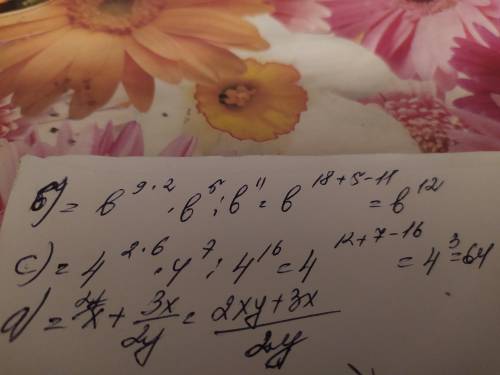 б) = b^{9·2} · b^5 : b^{11} = b^{18+5-11} = b^{12}
c) = 4^{2·6} · 4^7 : 4^{16} = 4^{12+7-16} = 4^3 = 64
a) = \frac{x}{1} + \frac{3x}{2y} = \frac{2xy+3x}{2y}